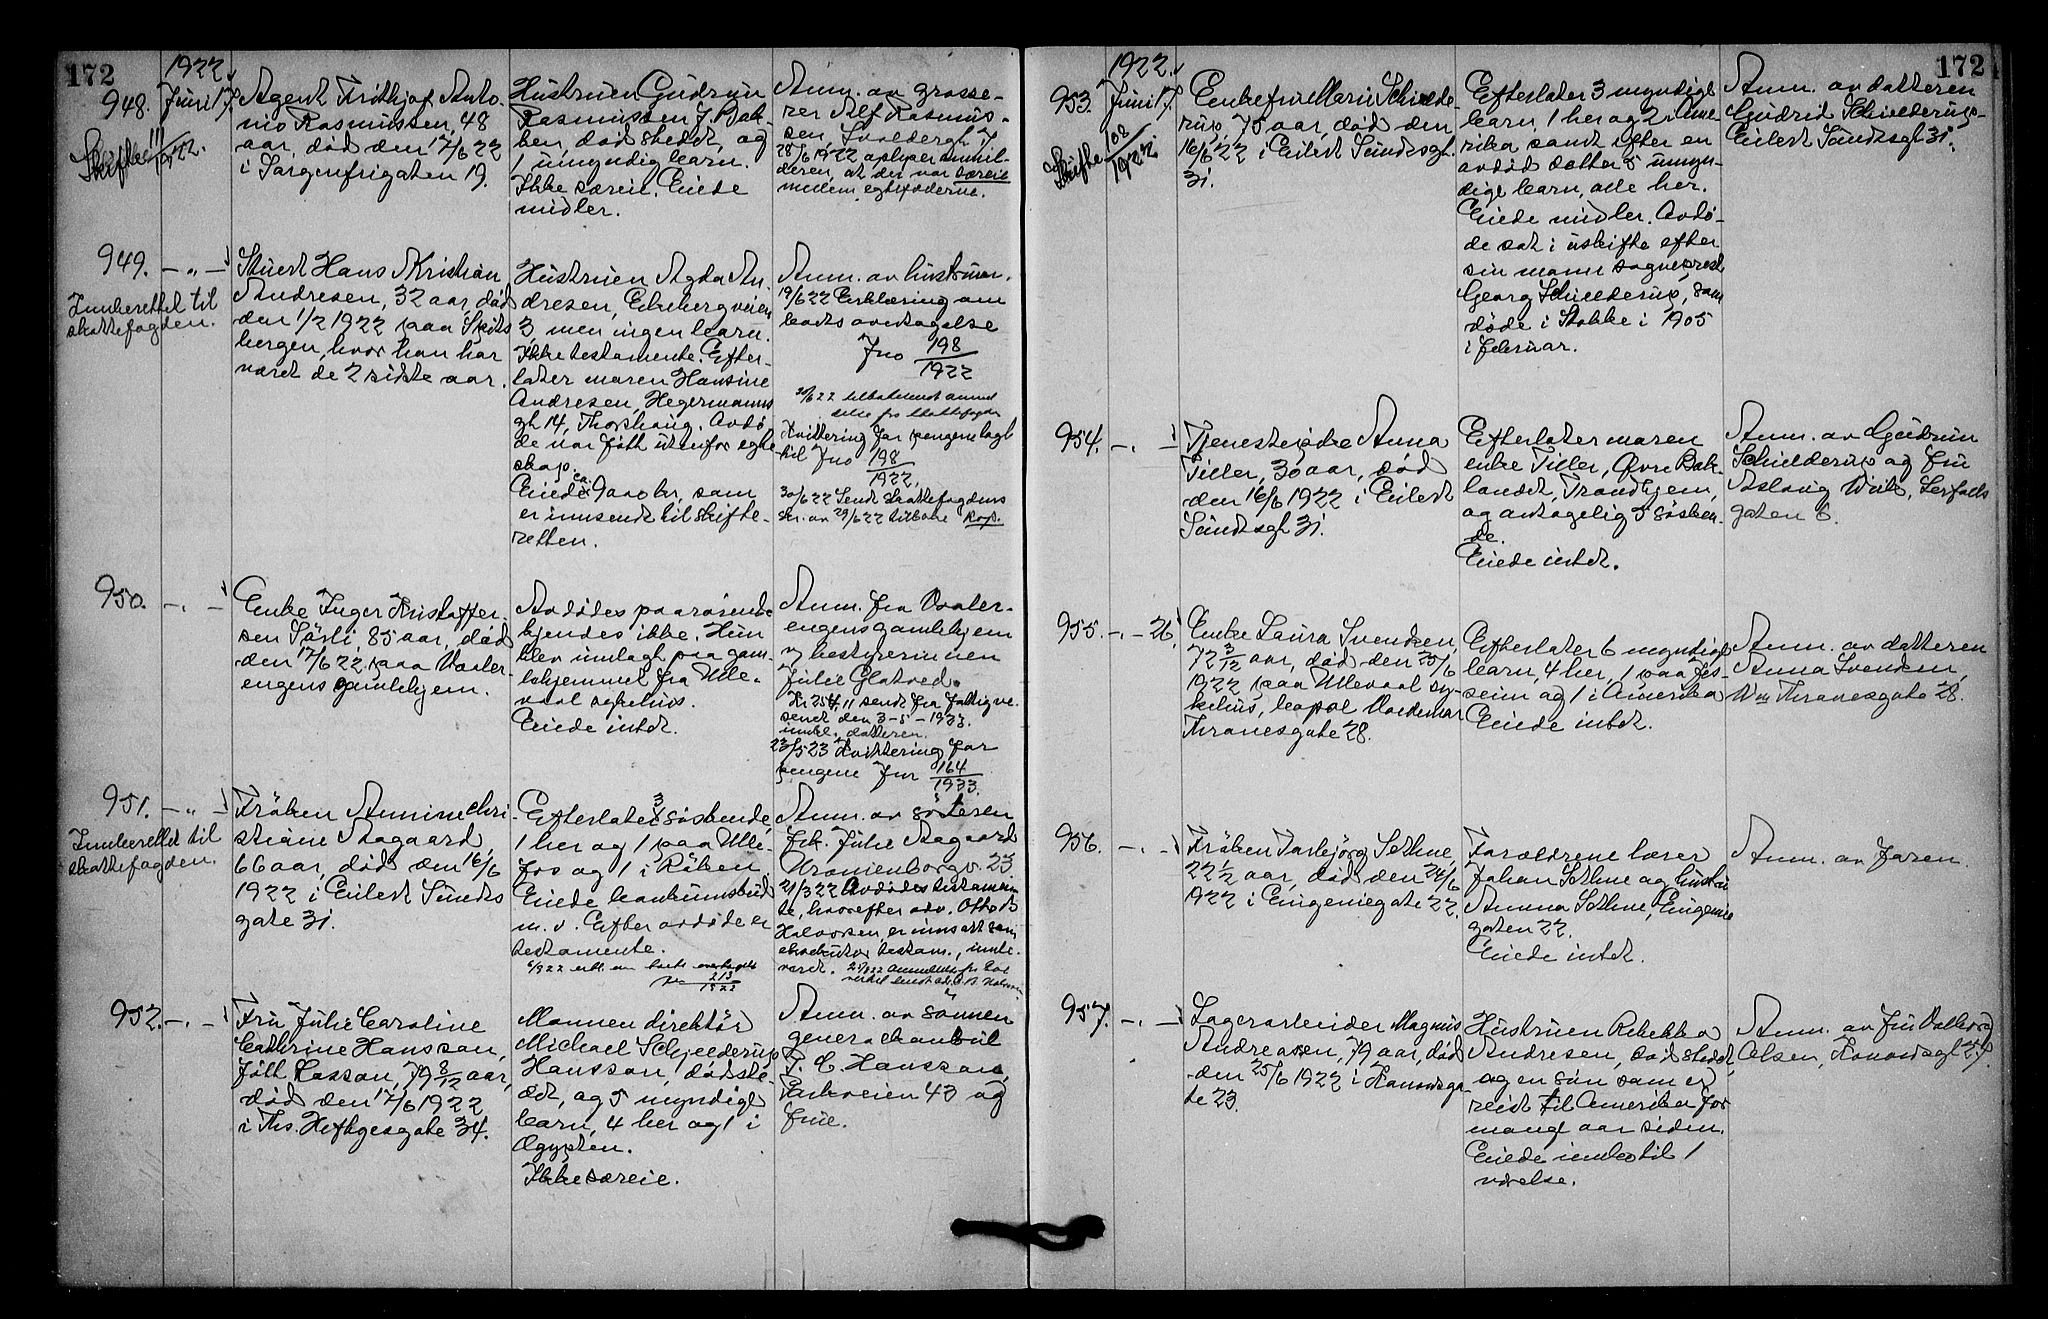 172
1922.
948. Juni 17.
Skifte 111/1922.
Agent Frithjof Anto-
nio Rasmussen, 48
aar, død den 17/6 22
i Sorgenfrigaten 19.
Hustruen Gudrun
Rasmussen f. Bak-
ken, død stedet, og
1 umyndig barn.
Ikke særeie. Eiede
midler.
Anm. av grosse-
rer Alf Rasmus-
sen, Svoldergt 7.
28/6 1922 oplyser anmel-
deren, at der var særeie
mellem egtefæderne.
949. — " —
Innberettet til
skattefogden.
Stuert Hans Kristian
Andresen, 32 aar, død
den 1/2 1922 paa Spits
bergen, hvor han har
været de 2 sidste aar.
Hustruen Agda An-
dresen, Ekebergveien
3, men ingen barn.
Ikke testamente. Efter-
later moren Hansine
Andresen, Hegermanns
gt 14, Thorshaug. Avdø-
de var født utenfor egte
skap.
Eiede ca. 9000 kr, som
er innsendt til skifte-
retten.
Anm. av hustruen.
19/6 22 Erklæring om
boets overtagelse
Jno 198/1922
20/6 22 tilbakesendt anmel
delse fra skattefogden
Kvittering for pengene lagt
til Jno 198/1922.
30/6 22 Sendt skattefogdens
skr. av 29/6 22 tilbake Kop.
950. — " —
Enke Inger Kristoffer-
sen Sørli, 85 aar, død
den 17/6 22 paa Vaaler-
engens gamlehjem.
Avdødes paarørende
kjendes ikke. Hun
blev innlagt paa gam-
lehjemmet fra Ulle-
vaal sykehus.
Eiede intet.
Anm. fra Vaaler-
engens gamlehjem
v/ bestyrerinnen
Julie Glatved.
Kr. 254,11 sendt fra fattigve-
senet den 3-5-1923.
innk. datteren.
23/5 23 Kvittering for
pengene Jnr 164/1923.
951. — " —
Innberettet til
skattefogden.
Frøken Annine Chri-
stiane Aagaard,
66 aar, død den 16/6
1922 i Eilert Sundts
gate 31.
Efterlater 3 søskende,
1 her og 1 paa Ulle-
fos og 1 i Røken.
Eiede bankinnskud
m.v. Efter avdøde er
testamente.
6/9 22 erkl. om boets overtagelse
Jno 213/1922
Anm. av søsteren
frk. Julie Aagaard
Uranienborgv. 23.
21/3 22 Avdødes testamen
te, hvorefter adv. Otto B.
Halvorsen er innsatt som
eksekutor testam., innle-
veret.
952. — " —
Fru Julie Caroline
Cathrine Hansson,
født Lasson, 79 8/12 aar,
død den 17/6 1922
i Ths. Heftyesgate 34.
Mannen direktør
Michael Schjelderup
Hansson, dødsste-
det, og 5 myndige
barn, 4 her og 1 i
Ægypten.
Ikke særeie.
Anm. av sønnen
generalkonsul
J. C. Hansson,
Parkveien 43 og
frue.
172
1922.
953. Juni 17.
Skifte 108/1922
Enkefru Marie Schielde-
rup, 75 aar, død den
16/6 22 i Eilert Sundtsgt.
31.
Efterlater 3 myndige
barn, 1 her og 2 i Ame
rika samt efter en
avdød datter 5 umyn-
dige barn, alle her.
Eiede midler. Avdø-
de sat i uskifte efter
sin mann sogneprest
Georg Schielderup, som
døde i Stokke i 1905
i februar.
Anm. av datteren
Gudrid Schielderup-
Eilert Sundtsgt 31.
954. — " —
Tjenestepike Anna
Tiller, 30 aar, død
den 16/6 1922 i Eilert
Sundtsgt 31.
Efterlater moren
enke Tiller, Øvre Bak-
landet, Trondhjem,
og antagelig 5 søsken-
de.
Eiede intet.
Anm. av Gudrun
Schielderup og fru
Aslaug
gaten 6.
955. — " — 26.
Enke Laura Svendsen,
72 3/12 aar, død den 25/6
1922 paa Ullevaal sy-
kehus, bopæl Marcus
Thranesgate 28.
Efterlater 6 myndige
barn, 4 her, 1 paa Jes-
seim og 1 i Amerika
Eiede intet.
Anm. av datteren
Anna Svendsen,
Ms Thranesgate 28.
956. — " —
Frøken Torbjørg Sethne,
22 1/2 aar, død den 24/6
1922 i Eugeniegate 22.
Forældrene lærer
Johan Sethne og hustru
Amma Sethne, Eugenie
gaten 22.
Eiede intet.
Anm. av faren.
957. — " —
Lagerarbeider Magnus
Andresen, 79 aar, død
den 25/6 1922 i Tromsøga
te 23.
Hustruen Rebekka
Andresen, død stedet,
og en søn som er
reist til Amerika for
mange aar siden.
Eiede innbo til 1
værelse.
Anm. av fru Valborg
Olsen, Tromsøgt 27